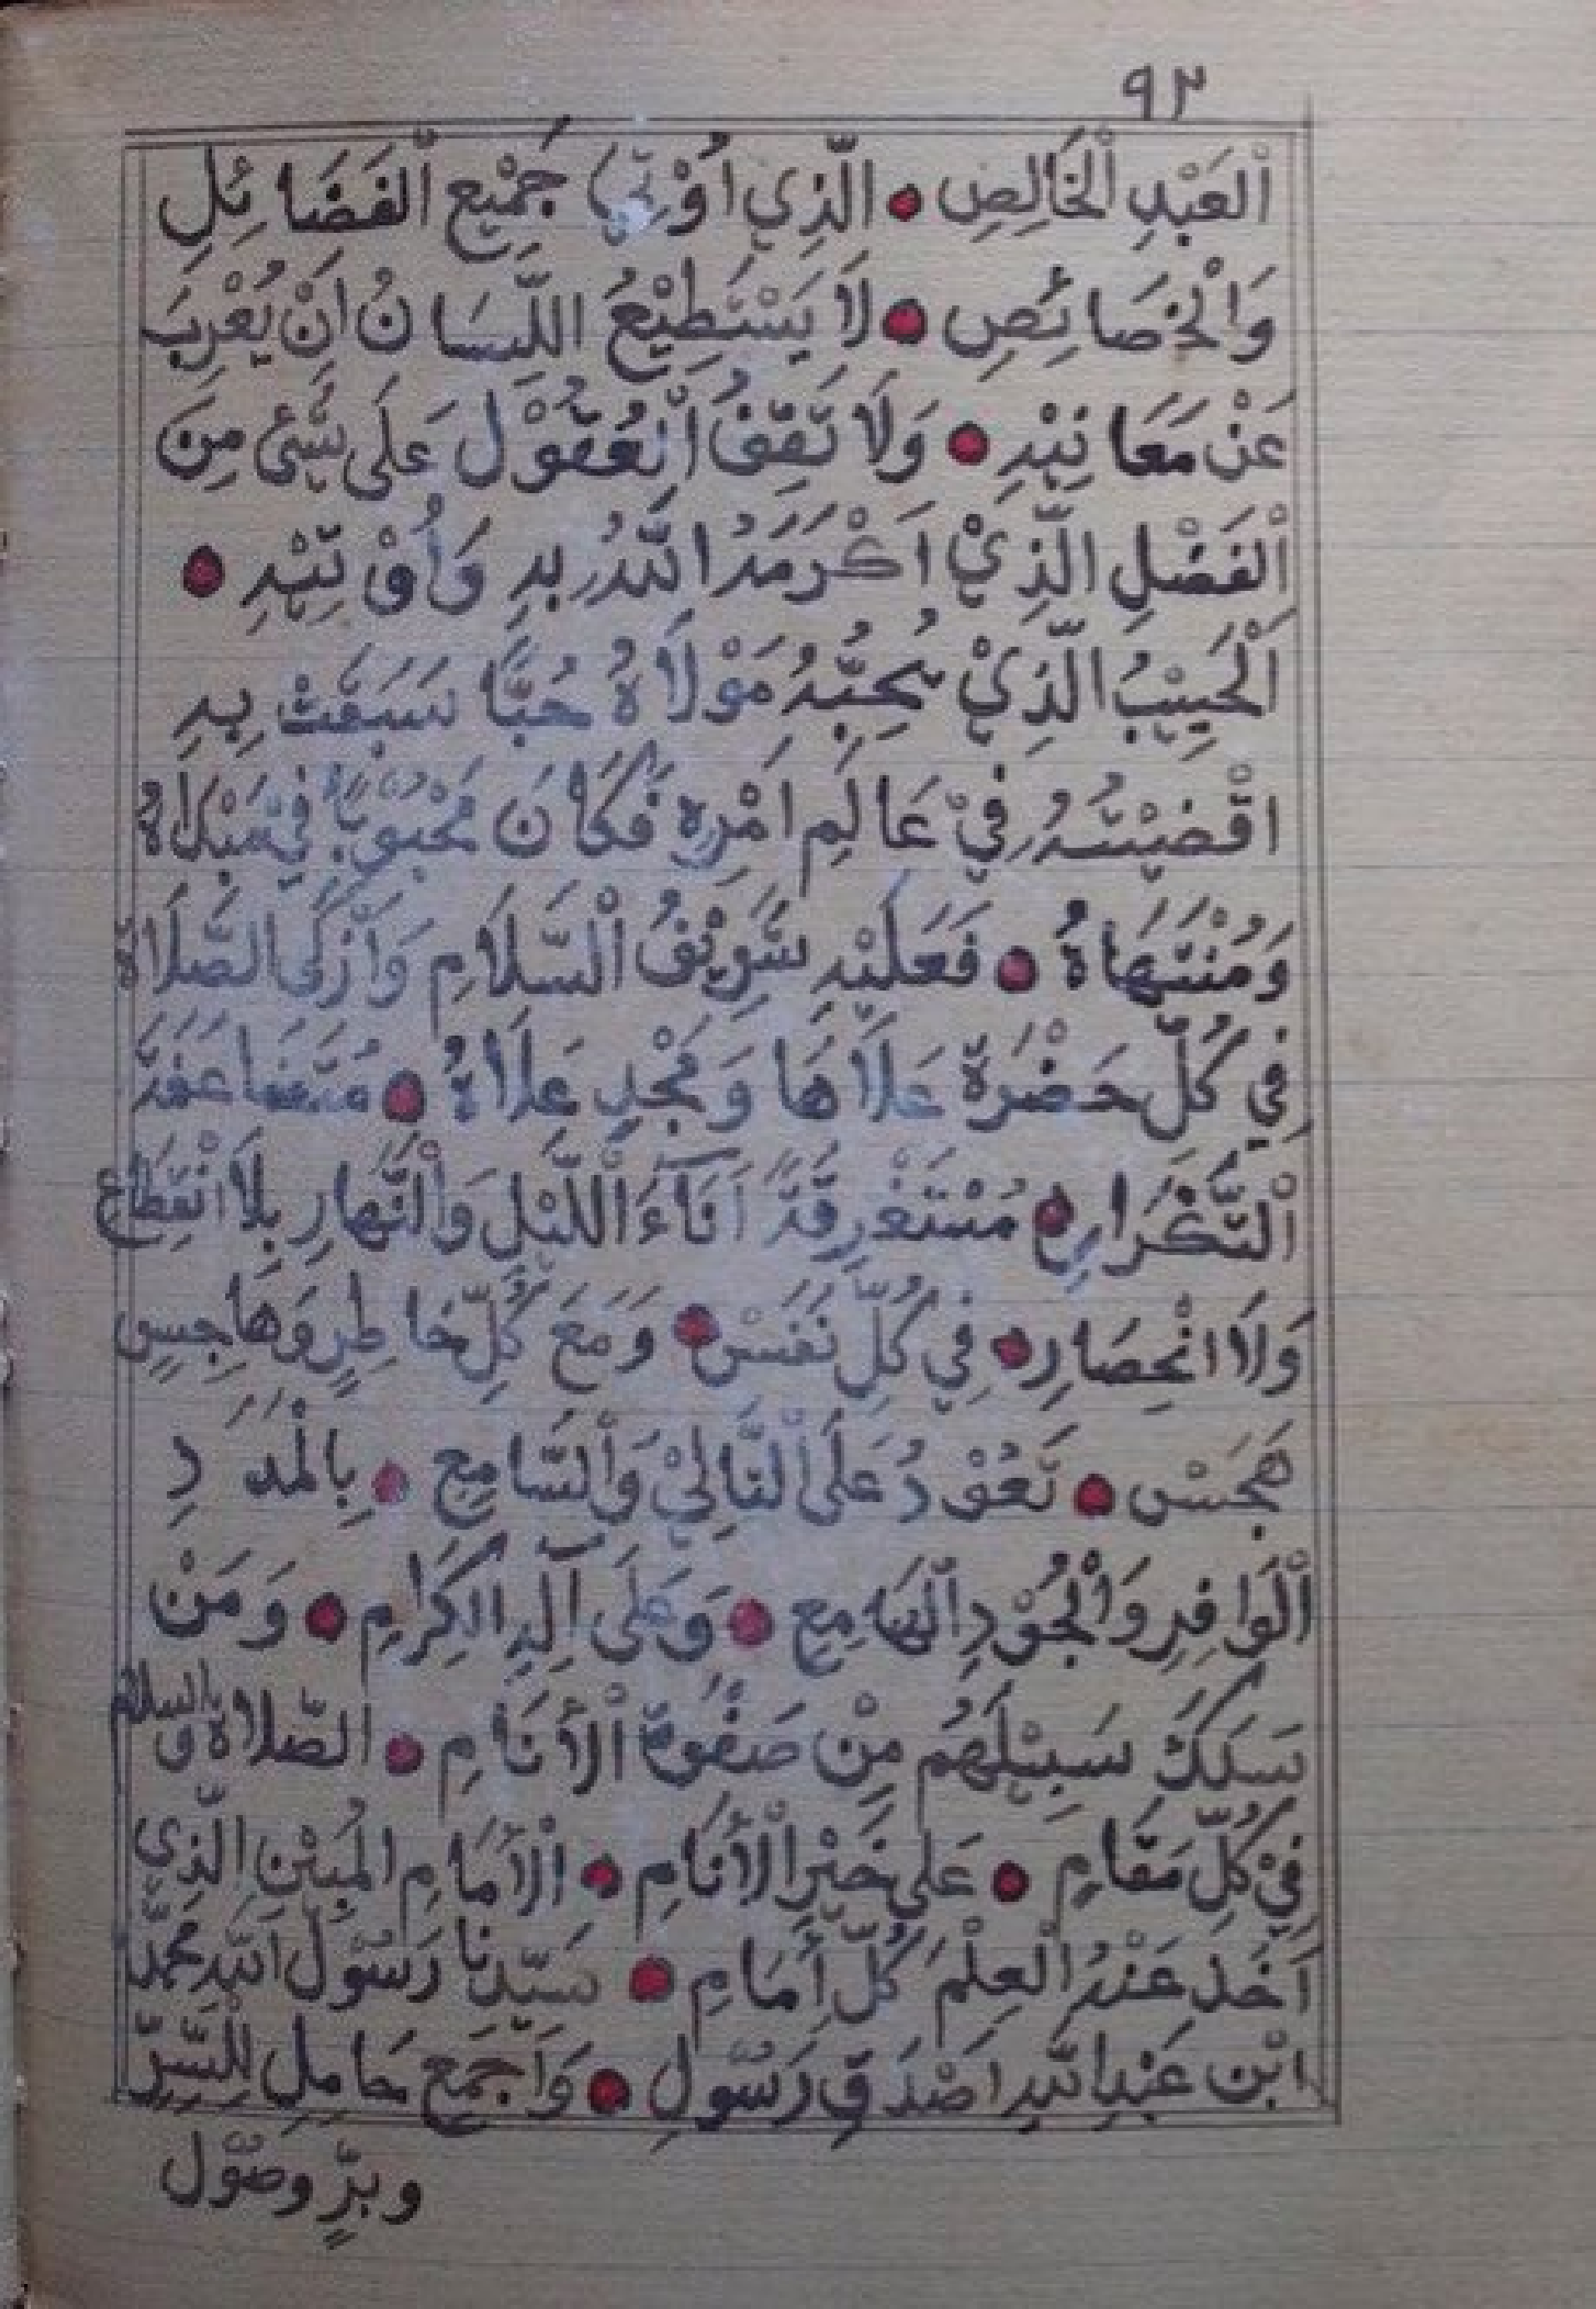 ٩٢
اَلْعَبْدِ الْخَالِصِ • الَّذِي اُوْتِيَ جَمِيْعَ الْفَضَائِلِ
وَالْخَصَائِصِ • لَا يَسْتَطِيْعُ اللِّسَانُ اَنْ يُعْرِبَ
عَنْ مَعَانِيْهِ • وَلَا تَقِفُ الْعُقُوْلُ عَلَى شَيْءٍ مِنَ
الْفَضْلِ الَّذِيْ اَكْرَمَهُ اللّٰهُ بِهِ وَاُوْتِيْهِ •
اَلْحَبِيْبُ الَّذِيْ يُحِبُّهُ مَوْلَاهُ حُبًّا سَبَقَتْ بِهِ
اقْضِيَتُهُ فِيْ عَالَمِ اَمْرِهِ فَكَانَ مَحْبُوْبًا فِيْ مَبْدَاهُ
وَمُنْتَهَاهُ • فَعَلَيْهِ شَرِيْفُ السَّلَامِ وَاَزْكَى الصَّلَاة
فِي كُلِّ حَضْرَةٍ عَلَاهَا وَمَجْدٍ عَلَاهُ • مُتَضَاعَفَةَ
التَّكْرَارِ • مُسْتَغْرِقَةً آنَاءَ اللَّيْلِ وَالنَّهَارِ بِلَا انْقِطَاعٍ
وَلَا انْحِصَارٍ • فِي كُلِّ نَفَسْ • وَمَعَ كُلِّ خَاطِرٍ وَهَاجِسٍ
هَجَسْ • تَعُوْدُ عَلَى التَّالِيْ وَالسَّامِعِ • بِالْمَدَدِ
الْوَافِرِ وَالْجُوْدِ الْهَامِعِ • وَعَلَى آلِهِ الْكِرَامِ • وَمَنْ
سَلَكَ سَبِيْلَهُمْ مِنْ صَفْوَةِ الْأَنَامِ • الصّلاة والسلام
فِيْ كُلِّ مَقَامٍ • عَلَى خَيْرِ الْأَنَامِ • الْأمَامِ الْمُبِيْنِ الَّذِي
اَخَذَ عَنْهُ الْعِلْمَ كُلُّ أمَامِ • سَيِّدِنَا رَسُوْلِ اللهِ مُحَمَّدِ
ابْن عَبْدِ اللهِ اَصْدَقِ رَسُوْلٍ • وَاَجْمَعِ حَامِلٍ لِلسِّرِّ
وبرٍّ وصُوْل